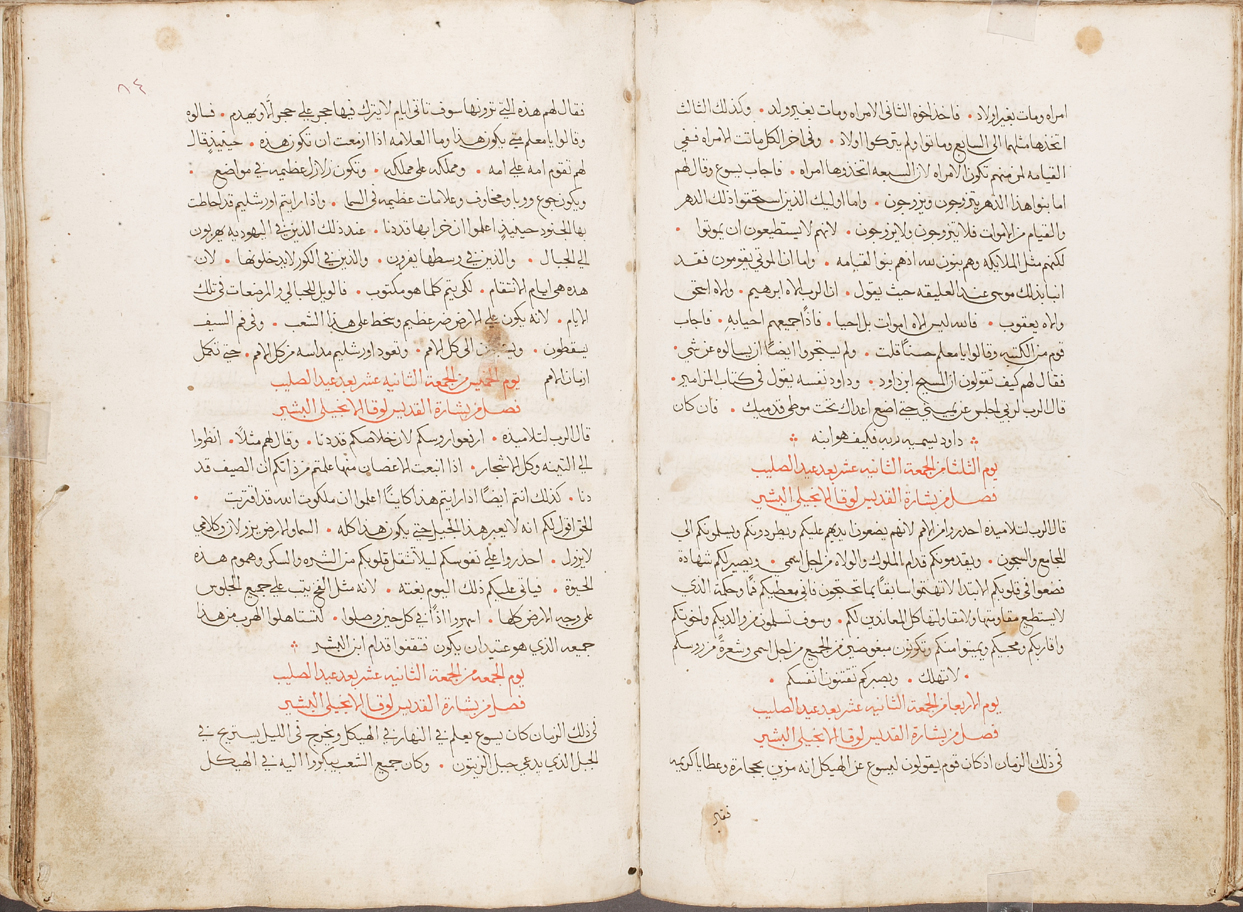 امراه ومات بغير اولاد • فاخذ اخوه الثانى الامراه ومات بغير ولد • وكذلك الثالث
اتخذها مثلهما الى السابع وماتوا ولم يتركوا اولاد • وفى اخر الكل ماتت الامراه ففى
القيامه لمن منهم تكون الامراه لان السبعه اتخذوها امراه • فاجاب يسوع وقال لهم
اما بنوا هذا الدهر يتزوجون ويزوجون • واما اوليك الذين استحقوا ذلك الدهر
والقيام من الاموات فلا يتزوجون ولا يزوجون • لانهم لا يستطيعون ان يموتوا •
لكنهم مثل الملايكه وهم بنون لله اذ هم بنوا القيامه • واما ان الموتى يقومون فقد
انبا بذلك موسى عند العليقه حيث يقول • انا الرب الاه ابرهيم • والاه اسحق
والاه يعقوب • فالله ليس الاه اموات بل احيا • فاذًا جميعهم احيا به • فاجاب
قوم من الكتبه وقالوا يا معلم حسنًا قلت • ولم يستجروا ايضًا ان يسالوه عن شى •
فقال لهم كيف تقولون ان المسيح ابن داود • وداود نفسه يقول فى كتاب المزامير •
قال الرب لربى اجلس عن يمينى حتى اضع اعداك تحت موطى قدميك • فان كان
داود يسميه ربه فكيف هو ابنه
يوم الثلثا من الجمعة الثانيه عشر بعد عيد الصليب
فصل من بشارة القديس لوقا الانجيلى البشير
قال الرب لتلاميذه احذروا من الامم لانهم يضعون ايديهم عليكم ويطردونكم ويسلمونكم الى
المجامع والسجون • ويقدمونكم قدام الملوك والولاه من اجل اسمى • ويصير لكم شهادة
فضعوا فى قلوبكم الا تبدا لا تهتموا سابقًا بما تحتجون فانى معطيكم فمًا وحكمة الذى
لا يستطيع مقاومتها ولا تقاولها كل المعاندين لكم • وسوف تسلمون من والديكم واخوتكم
واقاربكم ومحبيكم ويميتوا منكم وتكونون مبغوضين من الجميع من اجل اسمى وشعرة من روسكم
• لا تهلك • وبصبركم تقتنون انفسكم •
يوم الاربعا من الجمعة الثانيه عشر بعد عيد الصليب
فصل من بشارة القديس لوقا الانجيلى البشير
فى ذلك الزمان اذ كان قوم يقولون ليسوع عن الهيكل انه مزين بحجارة وعطايا كريمه
فقال
٨٤
فقال لهم هذه التى ترونها سوف تاتى ايام لا يترك فيها حجر على حجر الا ويهدم • فسالوه
وقالوا يا معلم متى يكون هذا وما العلامه اذا ازمعت ان تكون هذه • حينيذ قال
لهم تقوم امه على امه • ومملكه على مملكه • وتكون زلازل عظيمه فى مواضع •
ويكون جوع ووبا ومخاوف وعلامات عظيمه فى السما • واذا رايتم اورشليم قد احاطت
بها الجنود حينيذ اعلموا ان خرابها قد دنا • عند ذلك الذين فى اليهوديه يهربون
الى الجبال • والذين فى وسطها يفرون • والذين فى الكور لا يدخلونها • لان
هذه هى ايام الانتقام • لكى يتم كلما هو مكتوب • فالويل للحبالى والمرضعات فى تلك
الايام • لانه يكون على الارض ضر عظيم وسخط على هذا الشعب • وفى فم السيف
يسقطون • ويسبون الى كل الامم • وتعود اورشليم مداسه من كل الامم • حتى تكمل
ازمان الامم
يوم الخميس من الجمعة الثانيه عشر بعد عيد الصليب
فصل من بشارة القديس لوقا الانجيلى البشير
قال الرب لتلاميذه • ارفعوا روسكم لان خلاصكم قد دنا • وقال لهم مثلًا • انظروا
الى التينه وكل الاشجار • اذا اينعت الاغصان منها علمتم من ذاتكم ان الصيف قد
دنا • كذلك انتم ايضًا اذا رايتم هذا كاينًا اعلموا ان ملكوت الله قد اقتربت •
الحق اقول لكم انه لا يعبر هذا الجيل حتى يكون هذا كله • السما والارض يزولان وكلامى
لا يزول • احذروا على نفوسكم ليلا تثقل قلوبكم من الشره والسكر وهموم هذه
الحيوة • فياتى عليكم ذلك اليوم بغته • لانه مثل الفخ يثب على جميع الجلوس
على وجه الارض كلها • اسهروا اذًا فى كل حين وصلوا • لتستاهلوا الهرب من هذا
جميعه الذى هو عتيد ان يكون فتقفوا قدام ابن البشر
يوم الجمعه من الجمعة الثانيه عشر بعد عيد الصليب
فصل من بشارة القديس لوقا الانجيلى البشير
فى ذلك الزمان كان يسوع يعلم فى النهار فى الهيكل ويخرج فى الليل يستريح فى
الجبل الذى يدعى جبل الزيتون • وكان جميع الشعب يبكروا اليه فى الهيكل